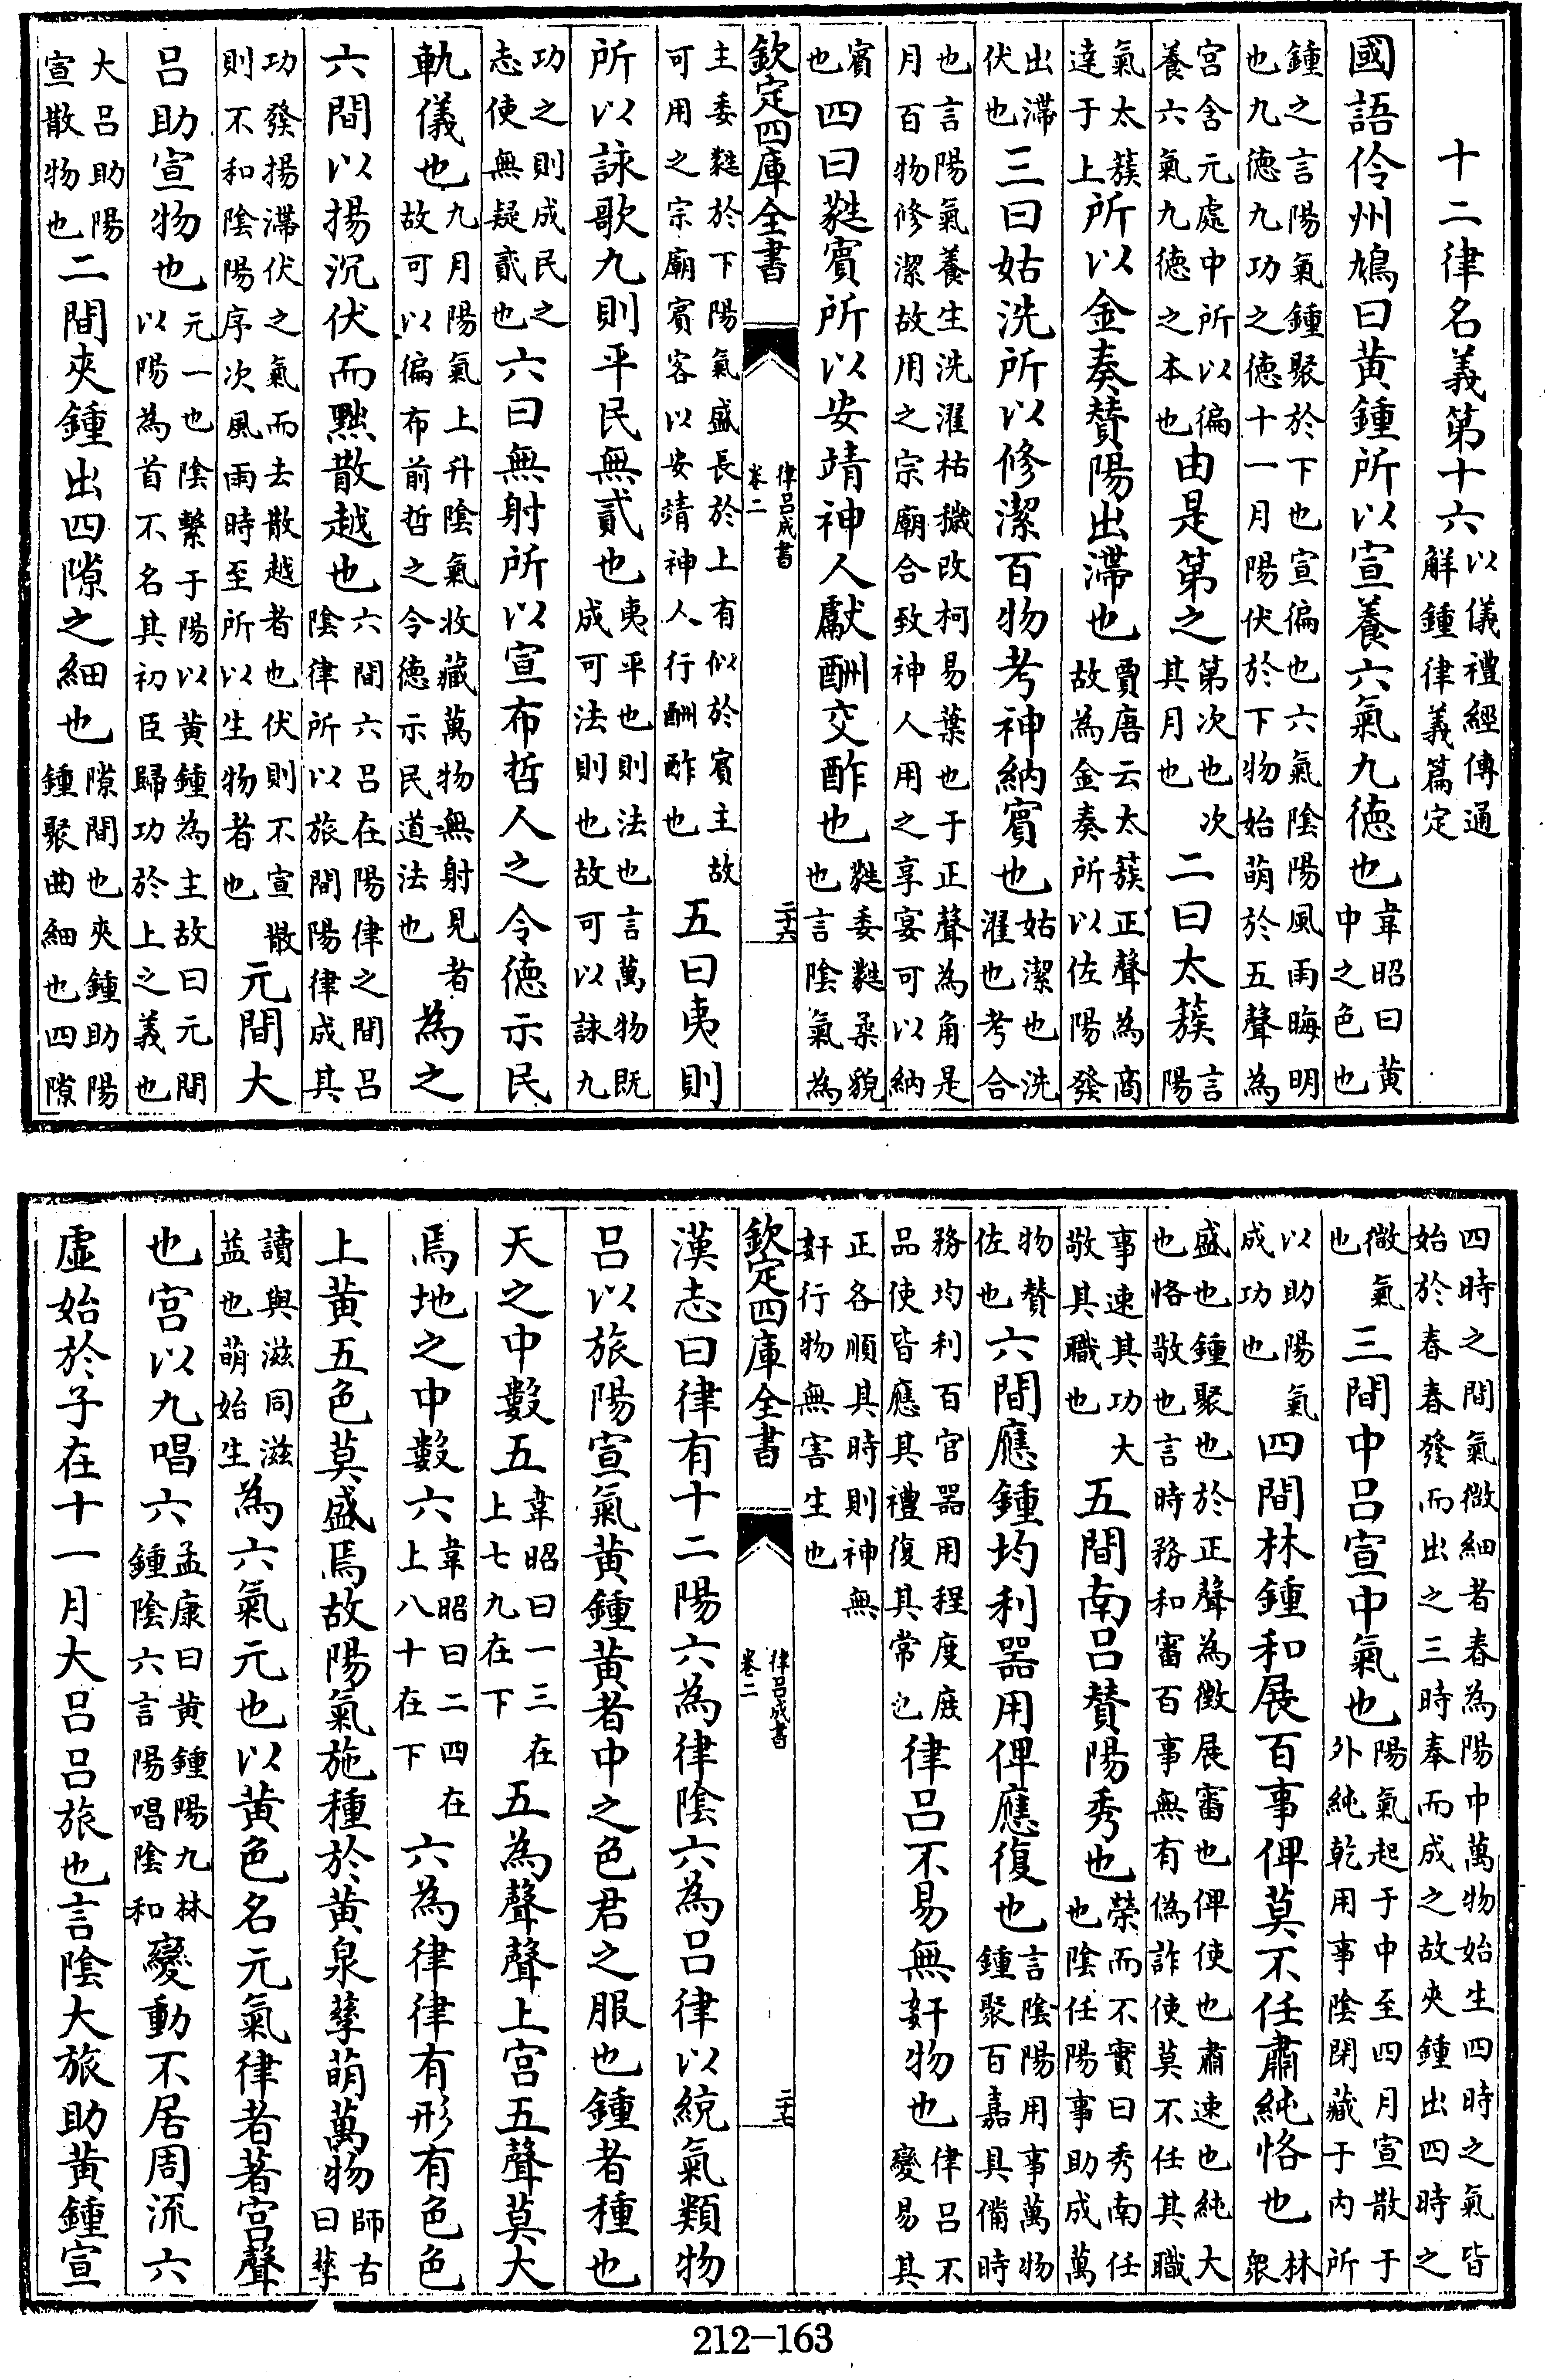 十二律名義第十六以儀禮經傳通解鍾律義篇定
國語伶州鳩曰黃鍾所以宣養六氣九德也韋昭曰黃中之色也
鍾之言陽氣鍾聚於下也宣徧也六氣陰陽風雨晦明也九德九功之德十一月陽伏於下物始萌於五聲為
宮含元處中所以徧養六氣九德之本也由是第之第次也次其月也二曰太簇言陽
氣太簇達于上所以金奏贊陽出滯也賈唐云太簇正聲為商故為金奏所以佐陽發
出滯伏也三曰姑洗所以修潔百物考神納賓也姑潔也洗濯也考合
也言陽氣養生洗濯枯穢改柯易葉也于正聲為角是月百物修潔故用之宗廟合致神人用之享宴可以納
賓也四曰蕤賓所以安靖神人獻酬交酢也蕤委蕤柔貌也言陰氣為
欽定四庫全書
律呂成書
卷二
二十六
主委蕤於下陽氣盛長於上有似於賓主故可用之宗廟賓客以安靖神人行酬酢也五曰夷則
所以詠歌九則平民無貳也夷平也則法也言萬物既成可法則也故可以詠九
功之則成民之志使無疑貳也六曰無射所以宣布哲人之令德示民
軌儀也九月陽氣上升陰氣收藏萬物無射見者故可以徧布前哲之令德示民道法也為之
六間以揚沉伏而黜散越也六間六呂在陽律之間呂陰律所以旅間陽律成其
功發揚滯伏之氣而去散越者也伏則不宣散則不和陰陽序次風雨時至所以生物者也元間大
呂助宣物也元一也陰繫于陽以黃鍾為主故曰元間以陽為首不名其初臣歸功於上之義也
大呂助陽宣散物也二間夾鍾出四隙之細也隙間也夾鍾助陽鍾聚曲細也四隙
四時之間氣微細者春為陽中萬物始生四時之氣皆始於春春發而出之三時奉而成之故夾鍾出四時之
微氣也三間中呂宣中氣也陽氣起于中至四月宣散于外純乾用事陰閉藏于内所
以助陽氣成功也四間林鍾和展百事俾莫不任肅純恪也林衆
盛也鍾聚也於正聲為徵展審也俾使也肅速也純大也恪敬也言時務和審百事無有偽詐使莫不任其職
事速其功大敬其職也五間南呂贊陽秀也榮而不實曰秀南任也陰任陽事助成萬
物贊佐也六間應鍾均利器用俾應復也言陰陽用事萬物鍾聚百嘉具備時
務均利百官器用程度庶品使皆應其禮復其常也律呂不易無姧物也律呂不變易其
正各順其時則神無姧行物無害生也
欽定四庫全書
律呂成書
卷二
二十七
漢志曰律有十二陽六為律陰六為呂律以統氣類物
呂以旅陽宣氣黃鍾黃者中之色君之服也鍾者種也
天之中數五韋昭曰一三在上七九在下五為聲聲上宮五聲莫大
焉地之中數六韋昭曰二四在上八十在下六為律律有形有色色
上黃五色莫盛焉故陽氣施種於黃泉孳萌萬物師古曰孳
讀與滋同滋益也萌始生為六氣元也以黃色名元氣律者著宮聲
也宮以九唱六孟康曰黃鍾陽九林鍾陰六言陽唱陰和變動不居周流六
虛始於子在十一月大呂呂旅也言陰大旅助黃鍾宣
212—163